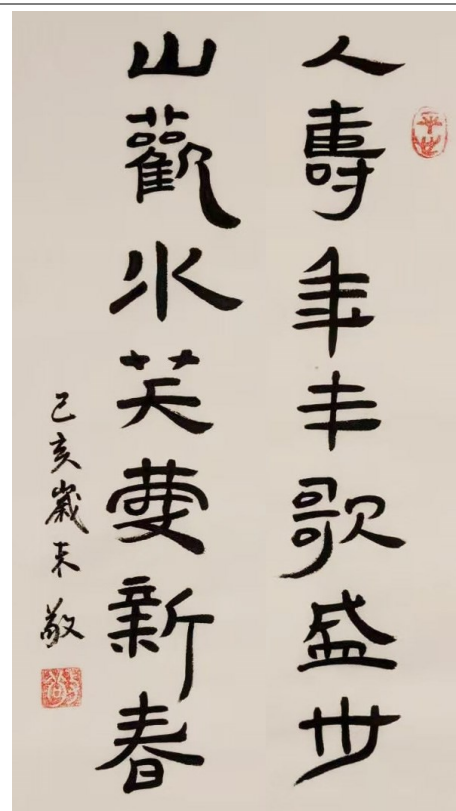 人壽年丰歌盛世
山歡水笑慶新春
己亥歲末 敬